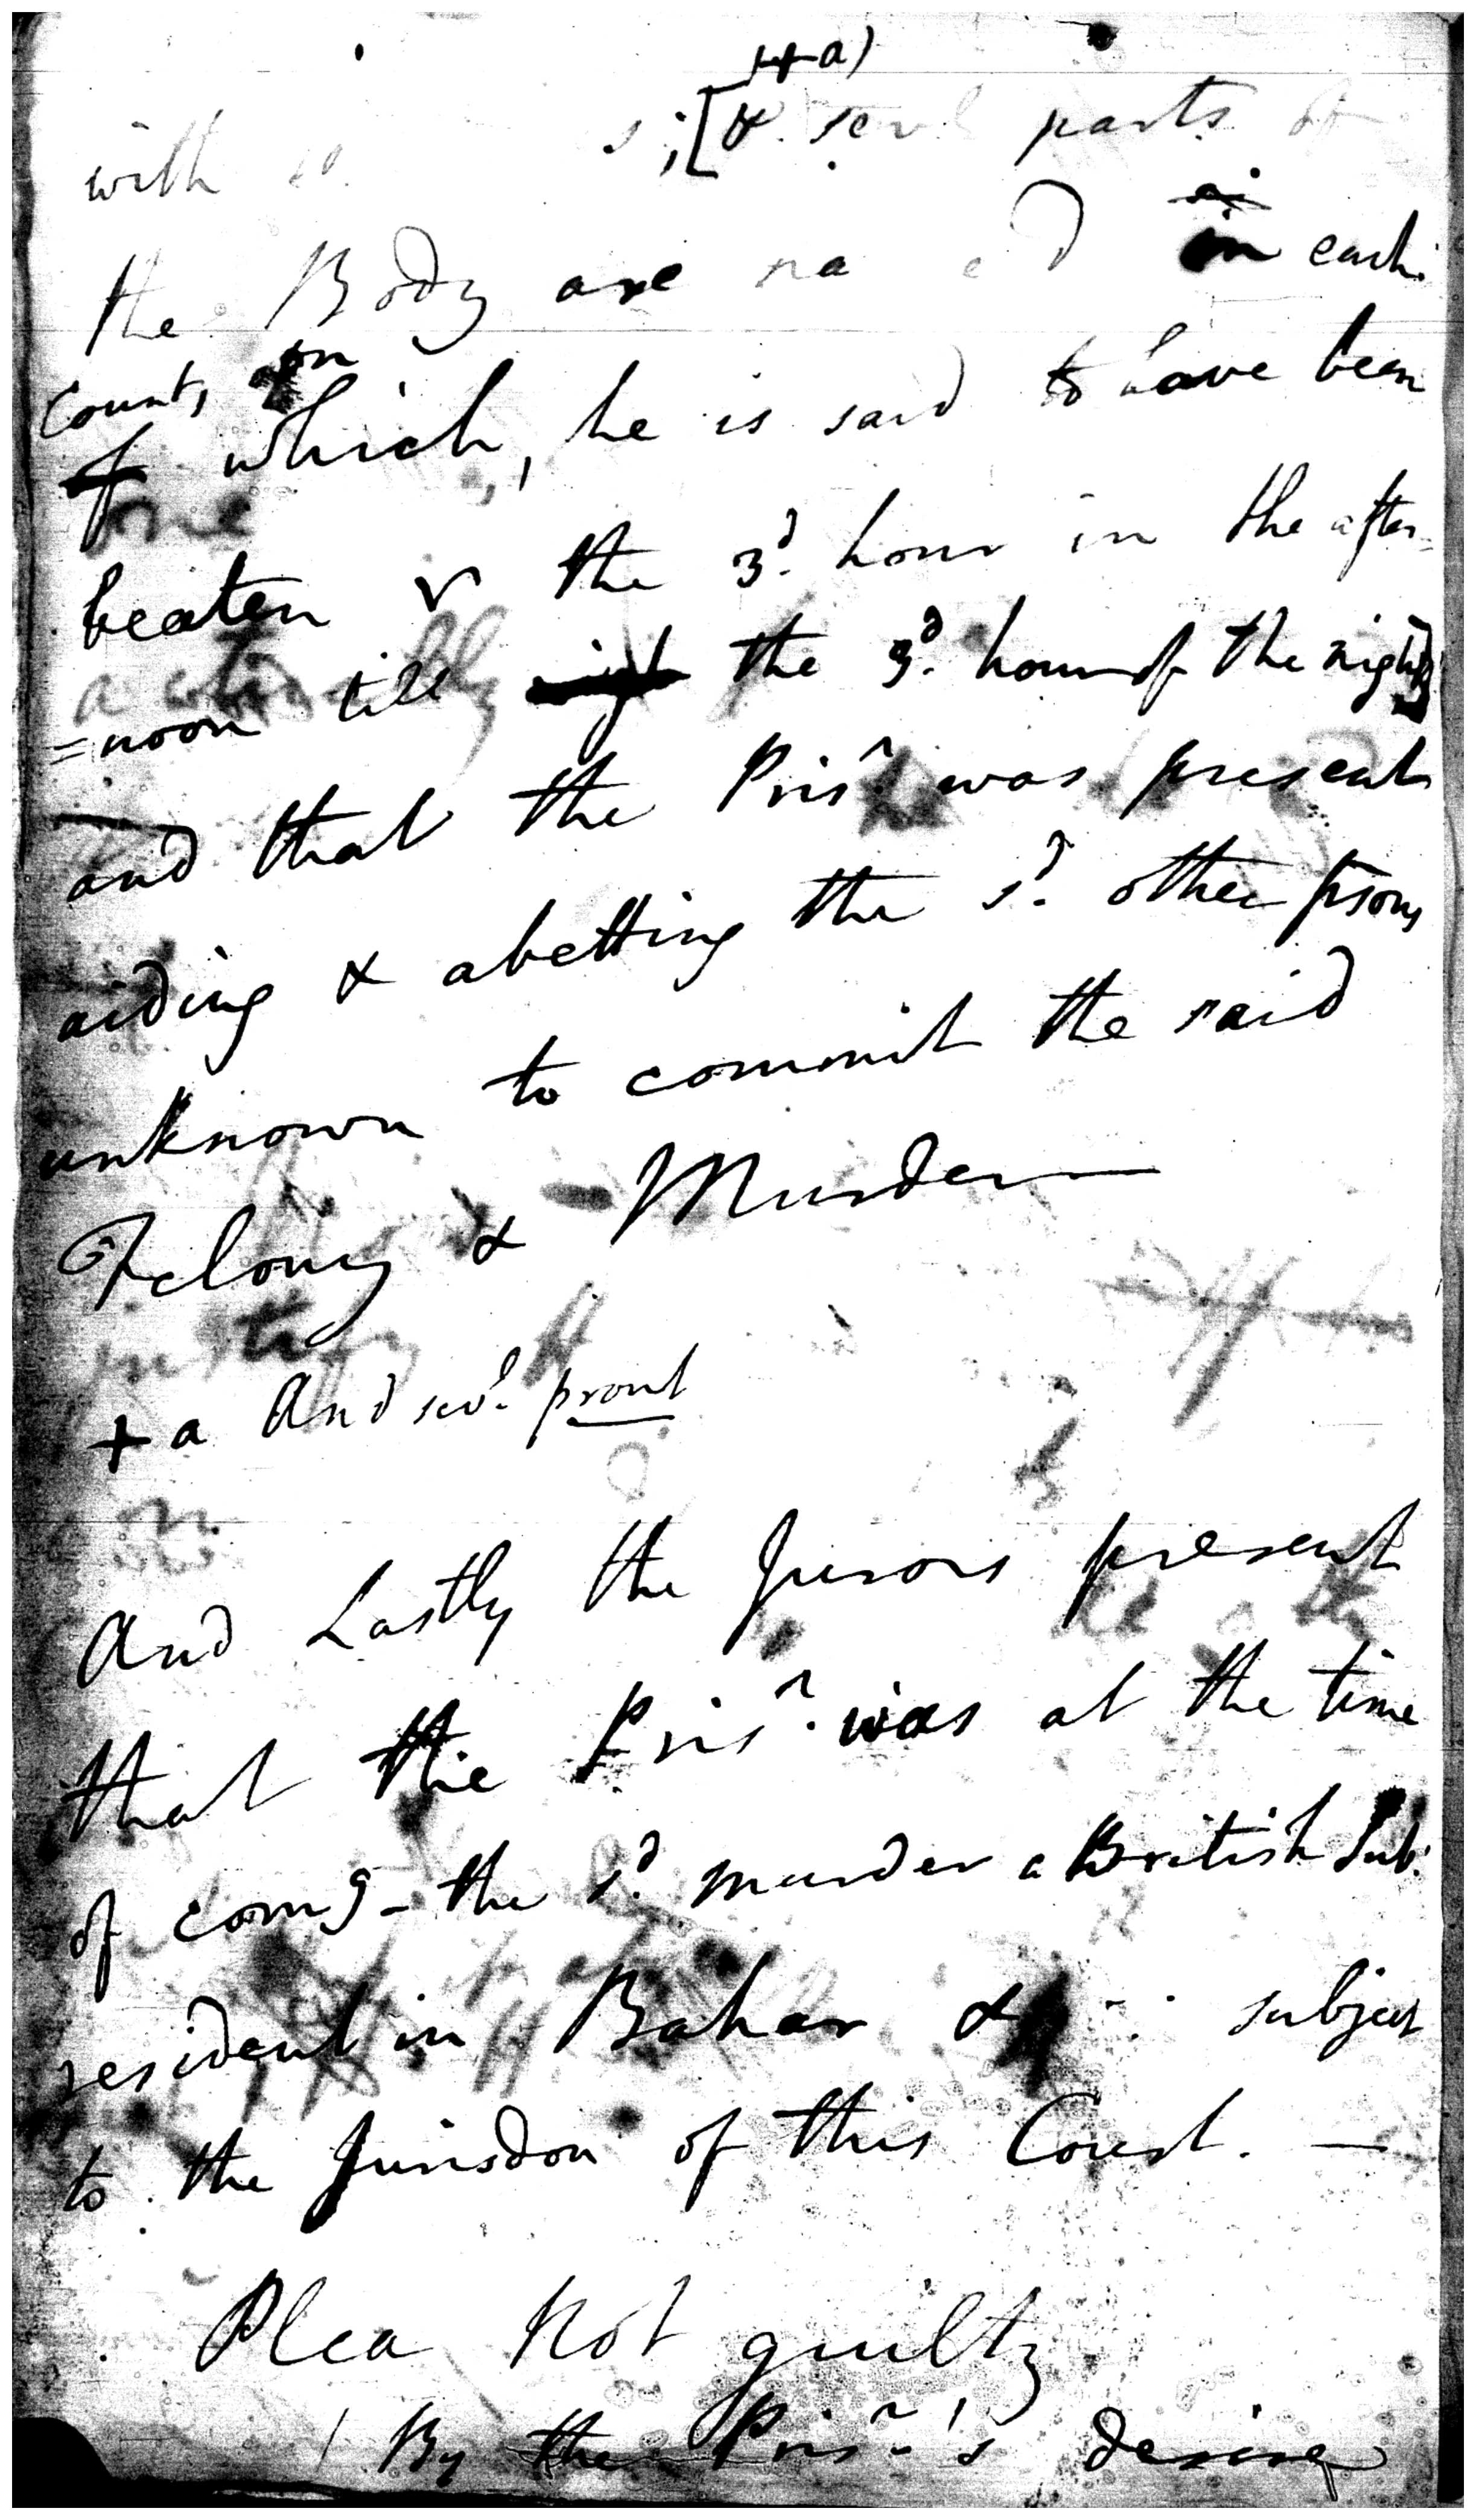 +a)
with s; [& sevl parts of
the Body are in each
Count, on
of which, he is said to have been
beaten v the 3d. hour in the after-
=noon till the 3d. hour of the night]
and that the Prisr was present
aiding & abetting the sd. other psons
unknown to commit the said
Felony & Murder
+a And sevl. prout
And Lastly the Jurors present
that the Prisr. was at the time
of comg- the sd. murder a British Sub:
resident in Bahar & subject
to the Jurisdon of this Court. —
Plea Not guilty
By the Prisr's desire